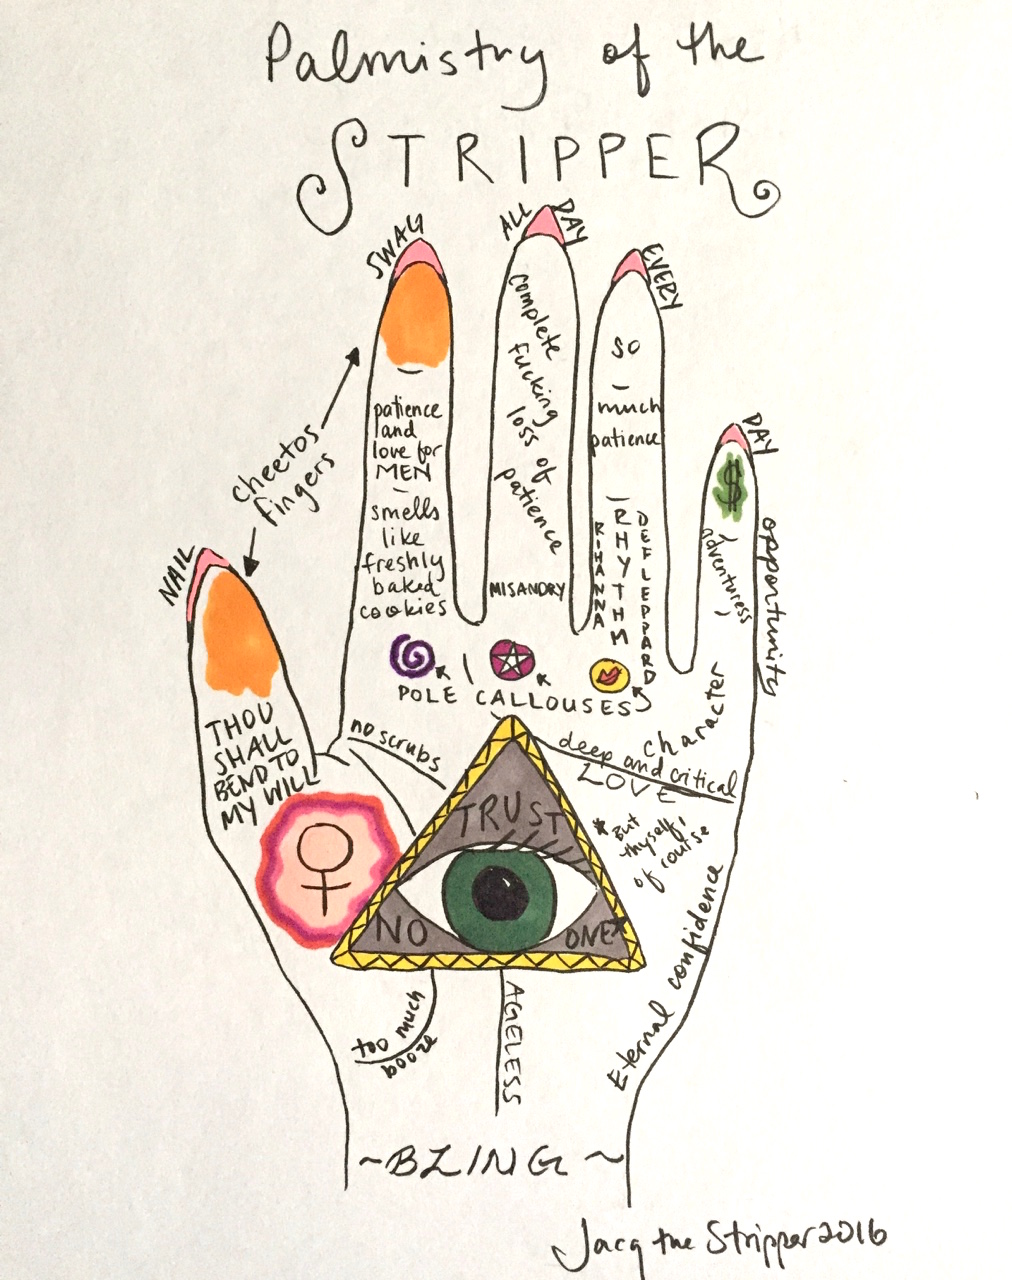 Palmistry of the
STRIPPER
SWAG
ALL DAY
EVERY
DAY
NAIL
cheetos
fingers
patience
and
love for
MEN
smells
like
freshly
baked
cookies
complete
fucking
loss of
patience
MISANDRY
so
much
patience
RIHANNA
RHYTHM
DEF LEPPARD
$
adventuress
opportunity
THOU
SHALL
BEND TO
MY WILL
POLE CALLOUSES
no scrubs
character
deep and critical
LOVE
TRUST
NO ONE*
*But
thyself,
of course
Eternal confidence
too much
booze
AGELESS
~BLING~
Jacq the Stripper 2016